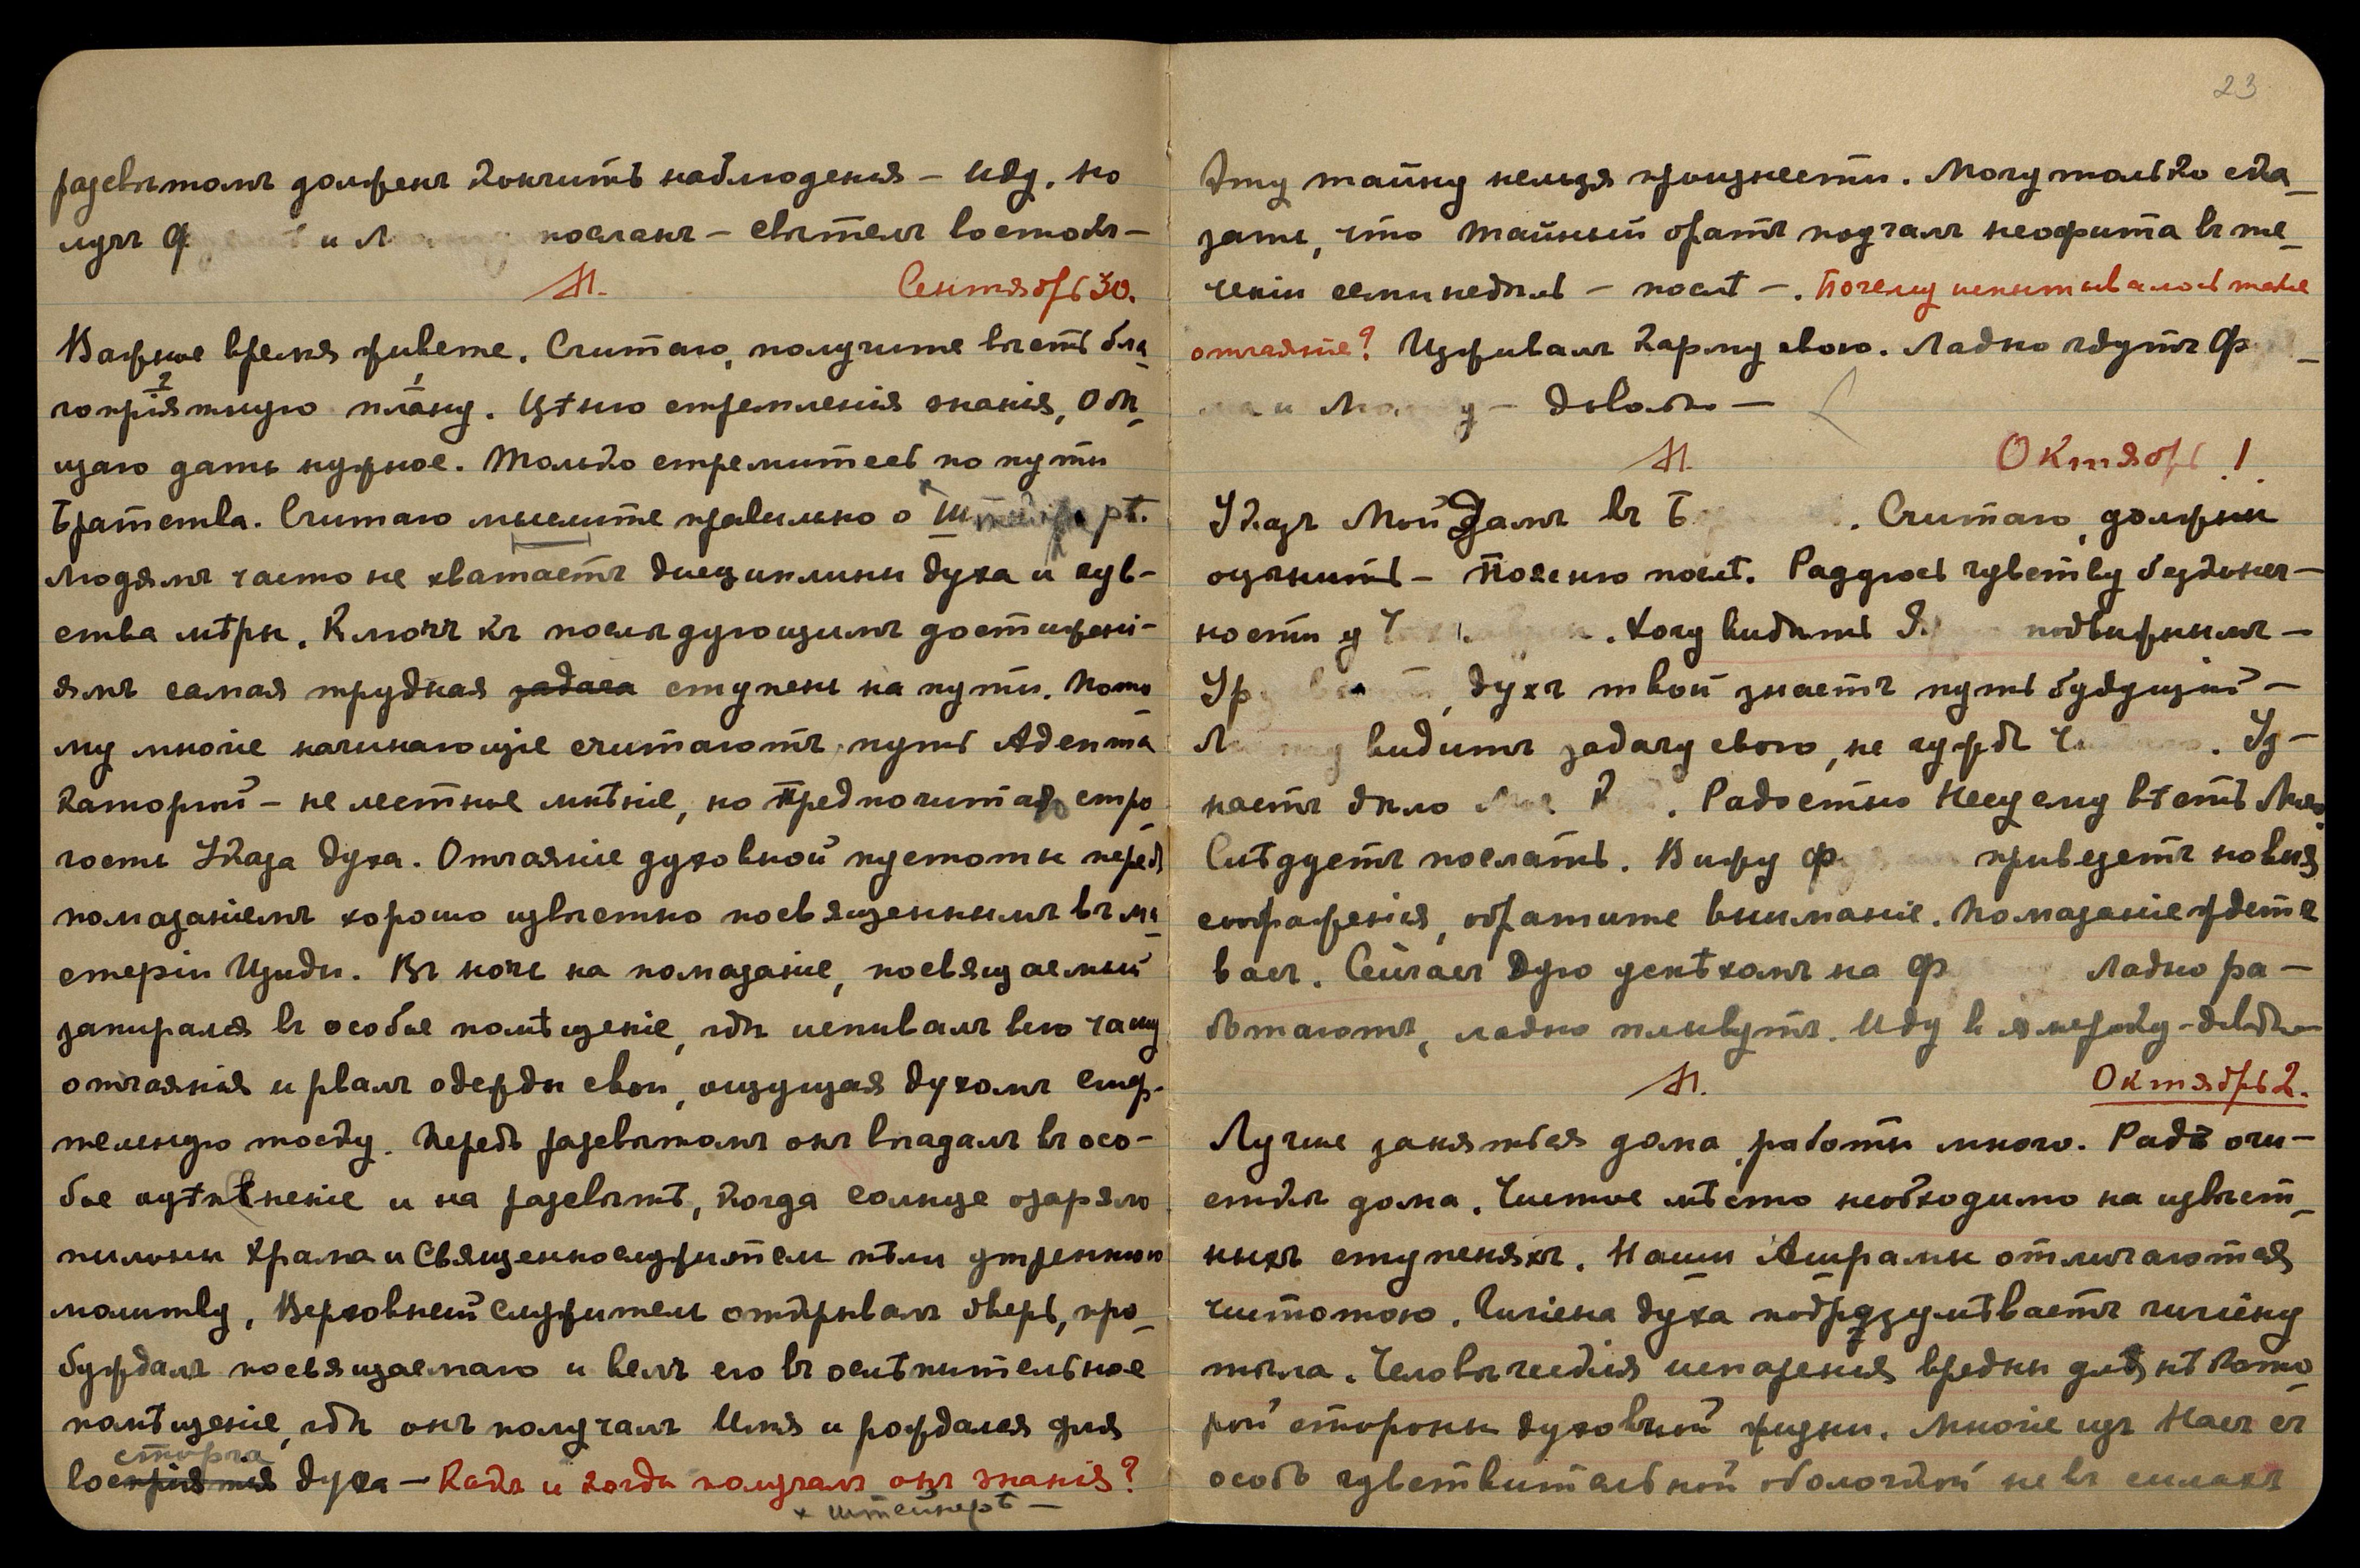 разсвѣтомъ долженъ кончить наблюденія – иду, но
лучъ Ф и посланъ – свѣтелъ востокъ –
М. Сентябрь 30.
Важное время живете. Считаю, получите вѣсть бла_
гопріятную плану. Цѣню стремленія знанія, Обѣ_
щаю дать нужное. Только стремитесь по пути
Братства. Считаю мыслите правильно о
Людямъ часто не хватаетъ дисциплины духа и чув–
ства мѣры. Ключъ къ послѣдующимъ достижені–
ямъ самая трудная задача ступень на пути. Пото_
му многіе начинающіе считаютъ путь Адепта
каторгой – не лестное мнѣніе, но предпочитаю стро_
гость Указа духа. Отчаяніе духовной пустоты передъ
помазаніемъ хорошо извѣстно посвященнымъ въ ми_
стеріи Изиды. Въ ночь на помазаніе, посвящаемый
запирался въ особое помѣщеніе, гдѣ испивалъ всю чашу
отчаянія и рвалъ одежды свои, ощущая духомъ смер–
тельную тоску. Передъ разсвѣтомъ онъ впадалъ въ осо–
бое оцѣпѣненіе и на разсвѣтѣ, когда солнце озаряло
пилоны храма и Священнослужители пѣли утреннюю
молитву, Верховный Служитель открывалъ дверь, про_
буждалъ посвящаемаго и велъ его въ ослѣпительное
помѣщеніе, гдѣ онъ получалъ Имя и рождался для
сторга
воспріятія духа – Какъ и когда получалъ онъ знанія?
× Штейнерѣ –
23
Эту тайну нельзя произнести. Могу только ска_
зать, что тайный братъ поучалъ неофита въ те_
ченіи семи недѣль – послѣ –. Почему испытывалось такое
отчаяніе? Изживалъ карму свою. Ладно ждутъ Ф
и – довольно –
М. Октябрь 1.
Указъ Мой Далъ въ Б . Считаю, должны
оцѣнить – Поясню послѣ. Радуюсь чувству безконеч–
ности у . Хочу видить Я подвижнымъ –
Ур , духъ твой знаетъ путь будущій –
Л видитъ задачу свою, не чуждъ . Уз–
наетъ дѣло . Радостно Несу ему вѣсть Мою.
Слѣдуетъ послать. Вижу Ф привезетъ новыя
соображенія, обратите вниманіе. Помазаніе ждетъ
васъ. Сейчасъ Дую успѣхомъ на Ф Ладно ра–
ботаютъ, ладно плывутъ. Иду довольно
М. Октябрь 2.
Лучше заняться дома, работы много. Радъ очи–
сткѣ дома. Чистое мѣсто необходимо на извѣст_
ныхъ ступеняхъ. Наши Ашрамы отличаются
чистотою. Гигіена духа подразумѣваетъ гигіену
тѣла. Человѣческія испаренія вредны для нѣкото_
рой стороны духовной жизни. Многіе изъ Насъ съ
особо чувствительной оболочкой не въ силахъ